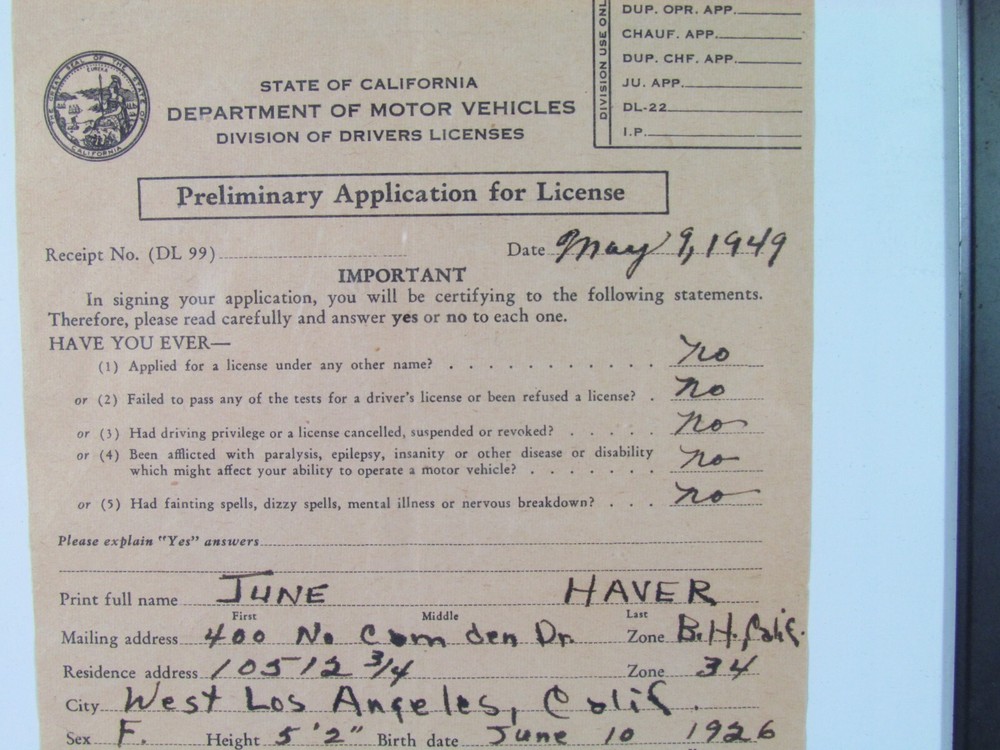 DUP. OPR. APP.
CHAUF. APP.
DUP. CHF. APP.
JU. APP.
DL-22
I.P.
DIVISION USE ONL
THE GREAT SEAL OF THE STATE OF CALIFORNIA
EUREKA
STATE OF CALIFORNIA
DEPARTMENT OF MOTOR VEHICLES
DIVISION OF DRIVERS LICENSES
Preliminary Application for License
Receipt No. (DL 99) Date May 9, 1949
IMPORTANT
In signing your application, you will be certifying to the following statements.
Therefore, please read carefully and answer yes or no to each one.
HAVE YOU EVER—
(1) Applied for a license under any other name? . . . . . . . . . . . no
or (2) Failed to pass any of the tests for a driver's license or been refused a license? . no
or (3) Had driving privilege or a license cancelled, suspended or revoked? . . . . . no
or (4) Been afflicted with paralysis, epilepsy, insanity or other disease or disability
which might affect your ability to operate a motor vehicle? . . . . . . . no
or (5) Had fainting spells, dizzy spells, mental illness or nervous breakdown? . . . no
Please explain "Yes" answers
Print full name JUNE HAVER
First Middle Last
Mailing address 400 No Camden Dr. Zone B.H., Calif.
Residence address 10512 3/4 Zone 34
City West Los Angeles, Calif.
Sex F. Height 5'2" Birth date June 10 1926